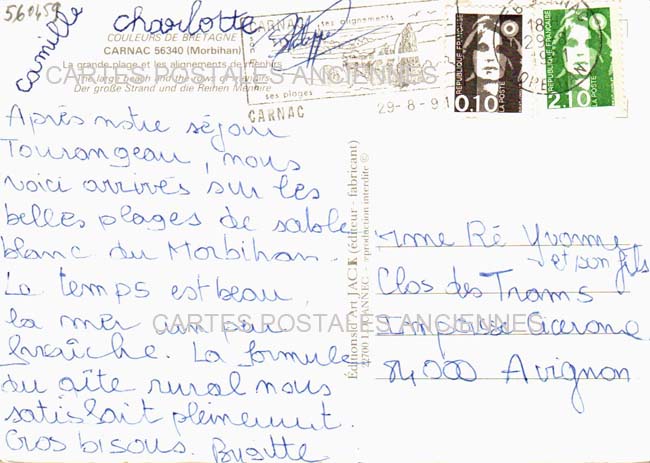 560459
Camille
Charlotte
Philippe
COULEURS DE BRETAGNE
CARNAC 56340 (Morbihan)
La grande plage et les alignements de menhirs
The large beach and the rows of menhirs
Der große Strand und die Reihen Menhire
CARTES POSTALES ANCIENNES
CARNAC
ses alignements
ses plages
CARNAC
29-8-91
18
19
REPUBLIQUE FRANÇAISE
0,10
LA POSTE
REPUBLIQUE FRANÇAISE
2,10
LA POSTE
Après notre séjour
Tourangeau, nous
voici arrivés sur les
belles plages de sable
blanc du Morbihan.
Le temps est beau,
la mer un peu
fraîche. La formule
du gîte rural nous
satisfait pleinement.
Gros bisous. Brigitte
Editions d'Art JACK (éditeur - fabricant)
reproduction interdite ©
Mme Ré Yvonne
et son fils
Clos des Trams
Impasse Cicerone
84000 Avignon
CARTES POSTALES ANCIENNES